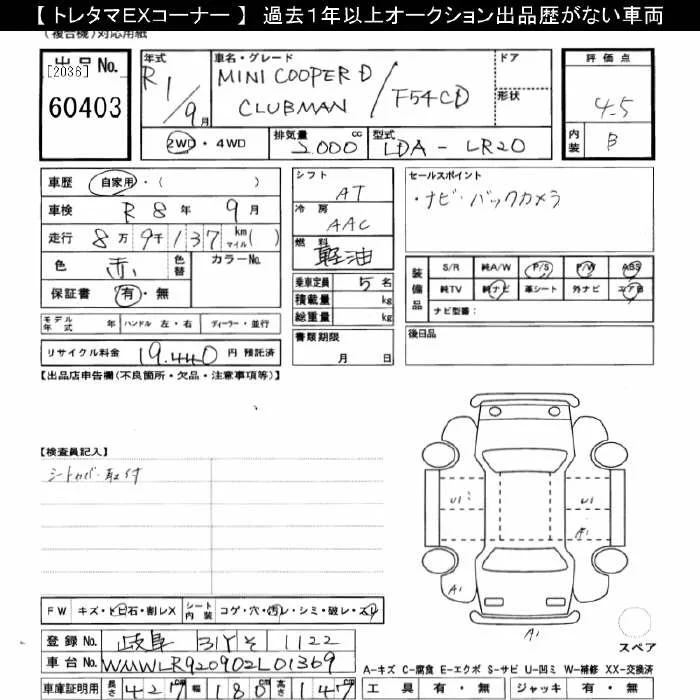 【トレタマEXコーナー】 過去1年以上オークション出品歴がない車両
(複合機)対応用紙
出品No. [2036] 60403
年式 R1/9月
車名・グレード MINI COOPER D CLUBMAN / F54CD
ドア
形状
評価点 4.5
内装 B
2WD・4WD
排気量 2000 cc
型式 LDA-LR20
車歴 自家用・( )
車検 R8年9月
走行 8万9千137 km マイル( )
色 赤 色替 カラーNo.
保証書 有・無
シフト AT
冷房 AAC
燃料 軽油
乗車定員 5名
積載量 kg
総重量 kg
セールスポイント
・ナビ・バックカメラ
装備品 S/R 純A/W P/S P/W ABS
純TV 純ナビ 革シート 外ナビ エア B
ナビ型番:
モデル年式 年 ハンドル 左・右 ディーラー・並行
書類期限 月 日
後日品
リサイクル料金 19.440 円 預託済
【出品店申告欄(不良箇所・欠品・注意事項等)】
【検査員記入】
シートカバー取付
U1
U1
A1
A1
A1
FW キズ・トビ石・割レX シート内装 コゲ・穴・汚レ・シミ・破レ・スレ
登録No. 岐阜 31Y そ 1122
スペア
車台No. WMWLR920902L01369
A-キズ C-腐食 E-エクボ S-サビ U-凹ミ W-補修 XX-交換済
車庫証明用 長さ 427 cm 幅 180 cm 高さ 147 cm
工具 有・無 ジャッキ 有・無